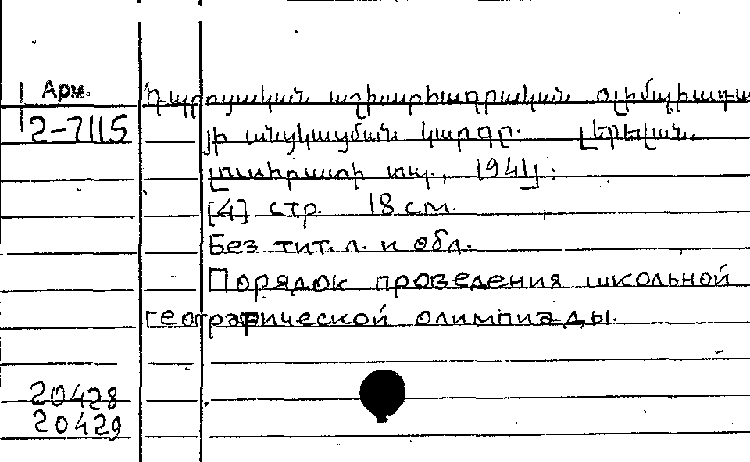 Арм. Դպրոցական աշխարհագրական օլիմպիադա
2-7115 յի անցկացման կարգը. Երևան.
տպ., 1941թ:
[4] стр. 18 см.
Без тит. л. и обл.
Порядок проведения школьной
географической олимпиады.
20428
20429